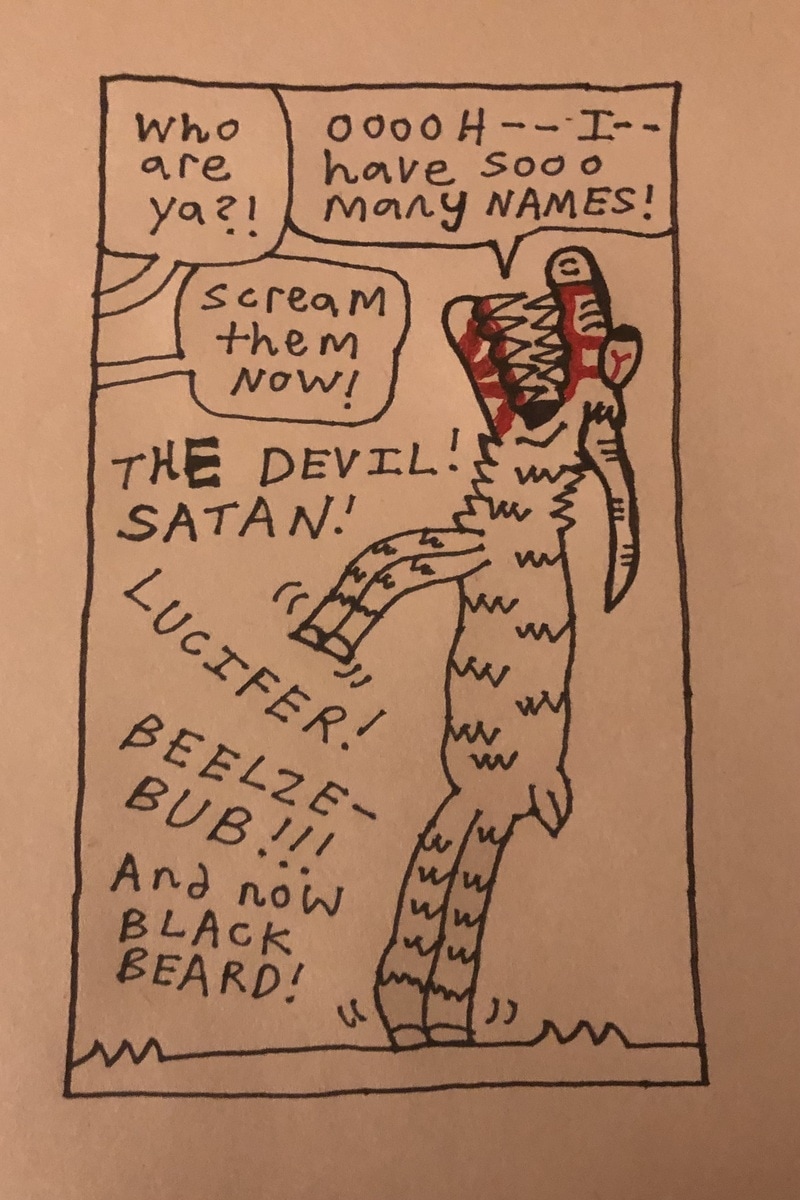 Who
are
ya?!
OOOOH---I--
have sooo
many NAMES!
scream
them
NOW!
THE DEVIL!
SATAN!
LUCIFER!
BEELZE-
BUB!!!
And now
BLACK
BEARD!